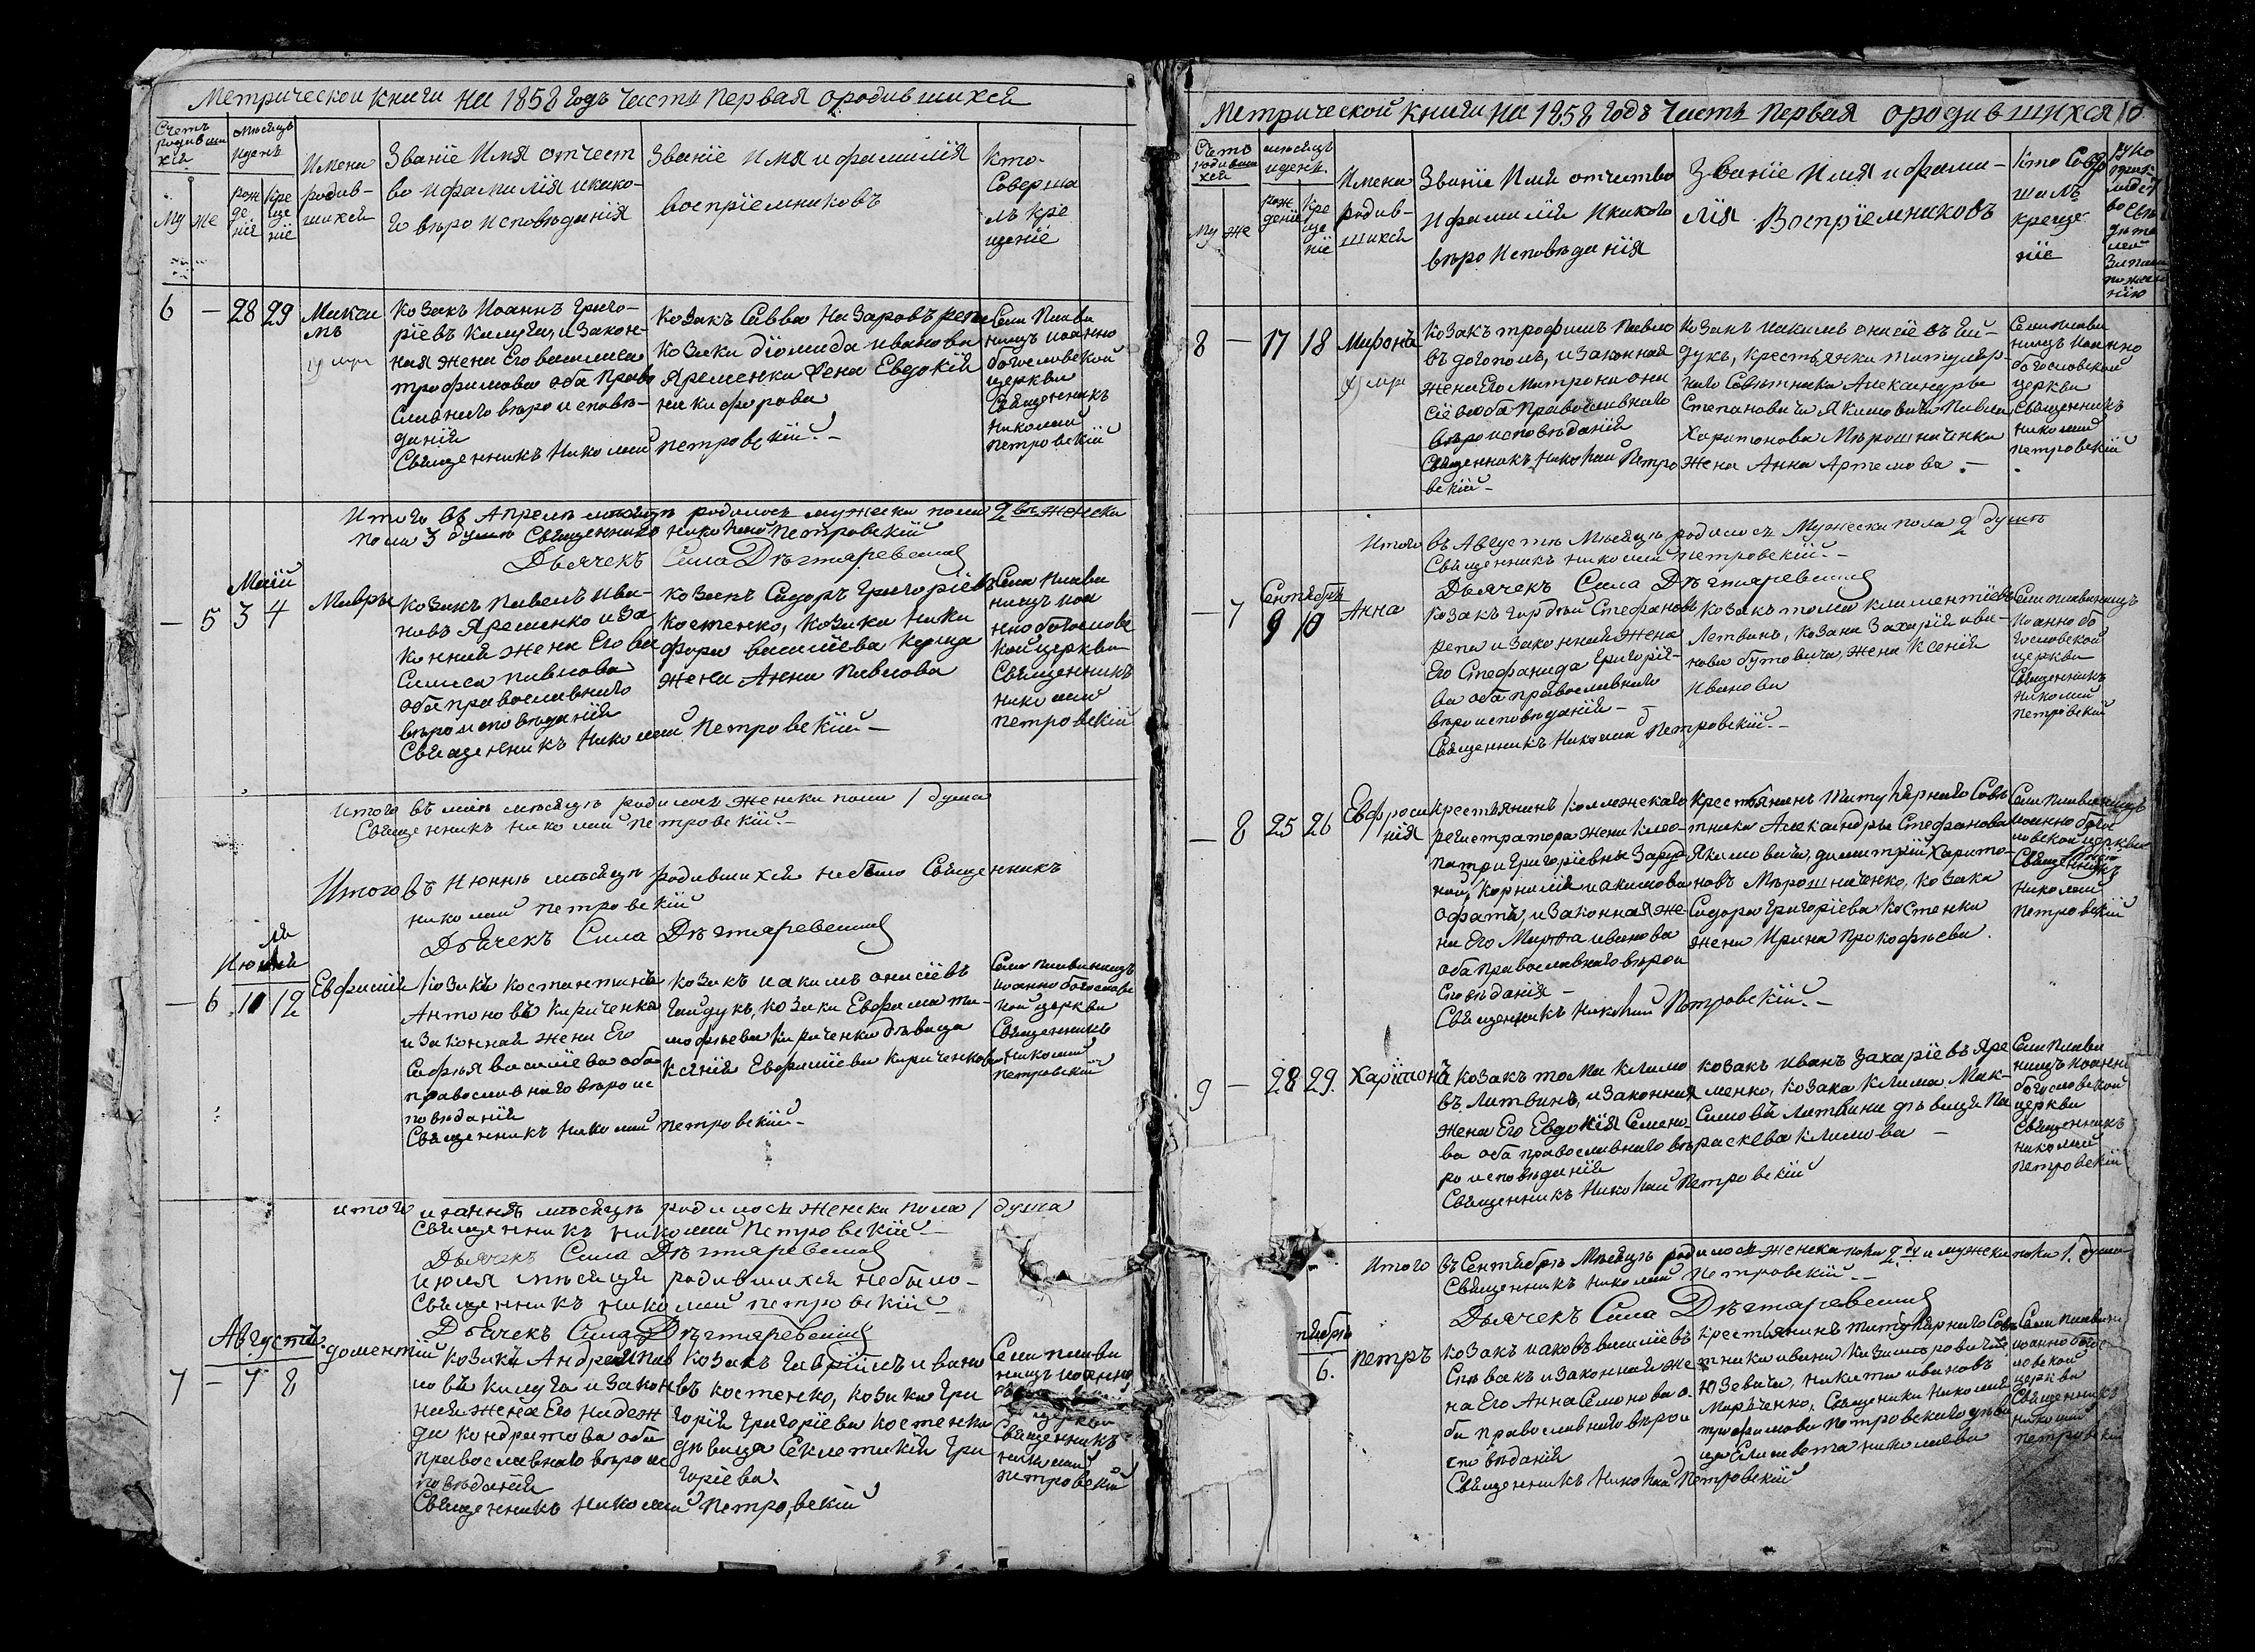 Метрической книги на 1858 годъ Часть Первая ородившихся
Счетъ родивши хся
мѣсяцъ идень
Имена родив- шихся
Званіе Имя отчест
во ифамилія икако-
го вѣро Исповѣданія
Званіе имя и фамилія
воспріемниковъ
Кто. Соверша лъ кре щеніе
му же
рож де нія
кре ще ніе
6 — 28 29
Михаи лъ
Козакъ Иоаннъ Григо-
ріевъ Калуга, изакон-
ная жена Его василиса
трофимова оба Право
славнаго вѣро исповѣ-
данія
Священникъ Николай Петровскій. –
Козакъ Савва Назаровъ репа
Козака діомида иванова
Яременка жена Евдокія
никифорова
Села Плави
нищъ иоанно
богословской
церкви
Священникъ
Николай
Петровскій
Итого въ Апрелѣ мѣсяцѣ родилось мужеска пола 2 ве женска
пола 3 души Священникъ николай Петровскій
Дьячекъ Сила Дѣгтяревскій
Маія
— 5 3 4
Мавра
Козакъ Павелъ Ива-
новъ Яременко и за
конная жена Его ва
силиса павлова
оба православнаго
вѣроисповѣданія
Священникъ Николай Петровскій –
козакъ Сидоръ Григоріевъ
Костенко, козака Ники
фора василіева Куца
жена Анна Павлова
Села Плави
нищъ иоа
нно богослов
кой церкви
Священникъ
николай
петровскій
Итого въ маѣ мѣсяцѣ родилось женска пола 1 душа
Священникъ николай петровскій. –
Итого въ Июнѣ мѣсяцѣ родившихся небыло Священникъ
николай петровскій
Дьячекъ Сила Дѣгтяревскій
— 6 11 12
Евфимія
Козакъ Костантинъ
Антоновъ Кириченко
и законная жена Его
Софья василіева оба
православнаго вѣроис
повѣданія
Священникъ Николай петровскій. –
козакъ иакимъ онисіевъ
Гайдукъ, козака Евфима ти-
мофѣева Кириченка дѣвица
Ксенія Евфиміева Кириченкова
Села Плавинищъ
иоанно богослов
кой церкви
Священникъ
Николай
Петровскій
итого мѣсяцѣ родилось женска пола 1 душа
Священникъ николай Петровскій. –
Дьячекъ Сила Дѣгтяревскій
июля мѣсяца родившихся небыло –
Священникъ николай петровскій –
Дьячекъ Сила Дѣгтяревскій
Августъ
7 — 7 8
доментій
козакъ Андрей Пав
ловъ калуга и закон
ная жена Его надеж
да кондратова оба
православнаго вѣроис
повѣданія
Священникъ николай Петровскій
козакъ Гавріилъ ивано
въ костенко, козака Гри
горія Григоріева костенка
дѣвица Секлетикія Гри
горіева.
Села плави
нищъ иоанно
церкви
Священникъ
николай
петровскій
Метрической книги на 1858 годъ Часть Первая ородившихся 10
Счетъ родивши хся
мѣсяцъ идень.
Имена родив- шихся
Званіе Имя отчество
ифамилія Икакого
вѣро Исповѣданія
Званіе Имя ифами-
лія Воспріемниковъ
Кто Совер шалъ креще ніе
му же
рож деніе
кре ще ніе
8 — 17 18
Миронъ
Козакъ трофимъ Павло
въ догополъ, изаконная
жена Его Матрона они
сіева оба Православнаго
вѣроисповѣданія
Священникъ Николай Петро
вскій –
Козакъ иакимъ онисіевъ Гай-
дукъ, крестьянка титуляр-
наго Совѣтника Александра
Степановича Якимовича Павла
Харитонова Мѣрошниченка
жена Анна Артемова. –
Села Плави
нищъ Иоанно
богословской
церкви
Священникъ
Николай
петровскій
Итого въ Августѣ Мѣсяцѣ родилось Мужеска пола 2 душъ
Священникъ николай петровскій. –
Дьячекъ Сила Дѣгтяревскій
Сентябрь
— 7 9 10
Анна
козакъ Гордѣй Стефановъ
репа и законная жена
Его Стефанида Григоріе-
ва оба православнаго
вѣроисповѣданія –
Священникъ Николай Петровскій. –
Козакъ тома климентіевъ
Летвинъ, козака Захарія ива-
нова бутовича, жена Ксенія
Иванова
Села плавинищъ
Иоанно бо
гословской
церкви
Священникъ
Николай
Петровскій
— 8 25 26
Евфроси нія
Крестьянинъ Коллежскаго
регистратора жены Клео-
патри Григоріевны Заруд-
ной, Корнилій иакимовъ
офатъ, и законная же-
на Его Марфа иванова
оба православнаго вѣрои
сповѣданія –
Священникъ Николай Петровскій. –
Крестьянинъ Титулярнаго Совѣ
тника Александра Стефанова
Якимовича, димитрій Харито-
новъ Мѣрошниченко, козака
Сидора Григоріева Костенка
жена Ирина Прокофьева.
Села Плавинищъ
иоанно богос
ловской церкви
Священникъ
Николай
Петровскій
9 — 28 29.
Харітонъ
Козакъ тома климо
въ литвинъ, изаконная
жена Его Евдокія Семено
ва оба православнаго вѣ
роисповѣданія
Священникъ Николай Петровскій
козакъ иванъ Захаріевъ Яре
менко, козака клима Мак-
симова литвина дѣвица Па
раскева климова –
Села Плави
нищъ Иоанно
богословской
церкви
Священникъ
Николай
Петровскій
Итого въ Сентябрѣ Мѣсяцѣ родилось женска пола 2 и мужеска пола 1. душа
Священникъ николай Петровскій. –
Дьячекъ Сила Дѣгтяревскій
6.
Петръ
козакъ иаковъ василіевъ
Спѣвакъ и законная же
на Его Анна Семонова о
ба православнаго вѣрои
сповѣданія
Священникъ Николай Петровскій
крестьянинъ титулярнаго Совѣ
тника ивана казимировича
Юзевича, никита ивановъ
Марченко, Священика Николая
трофимова Петровскаго дѣви
ца Елисавета николаева
Села Плавини
иоанно богос
ловской
церкви
Священникъ
николай
петровскій